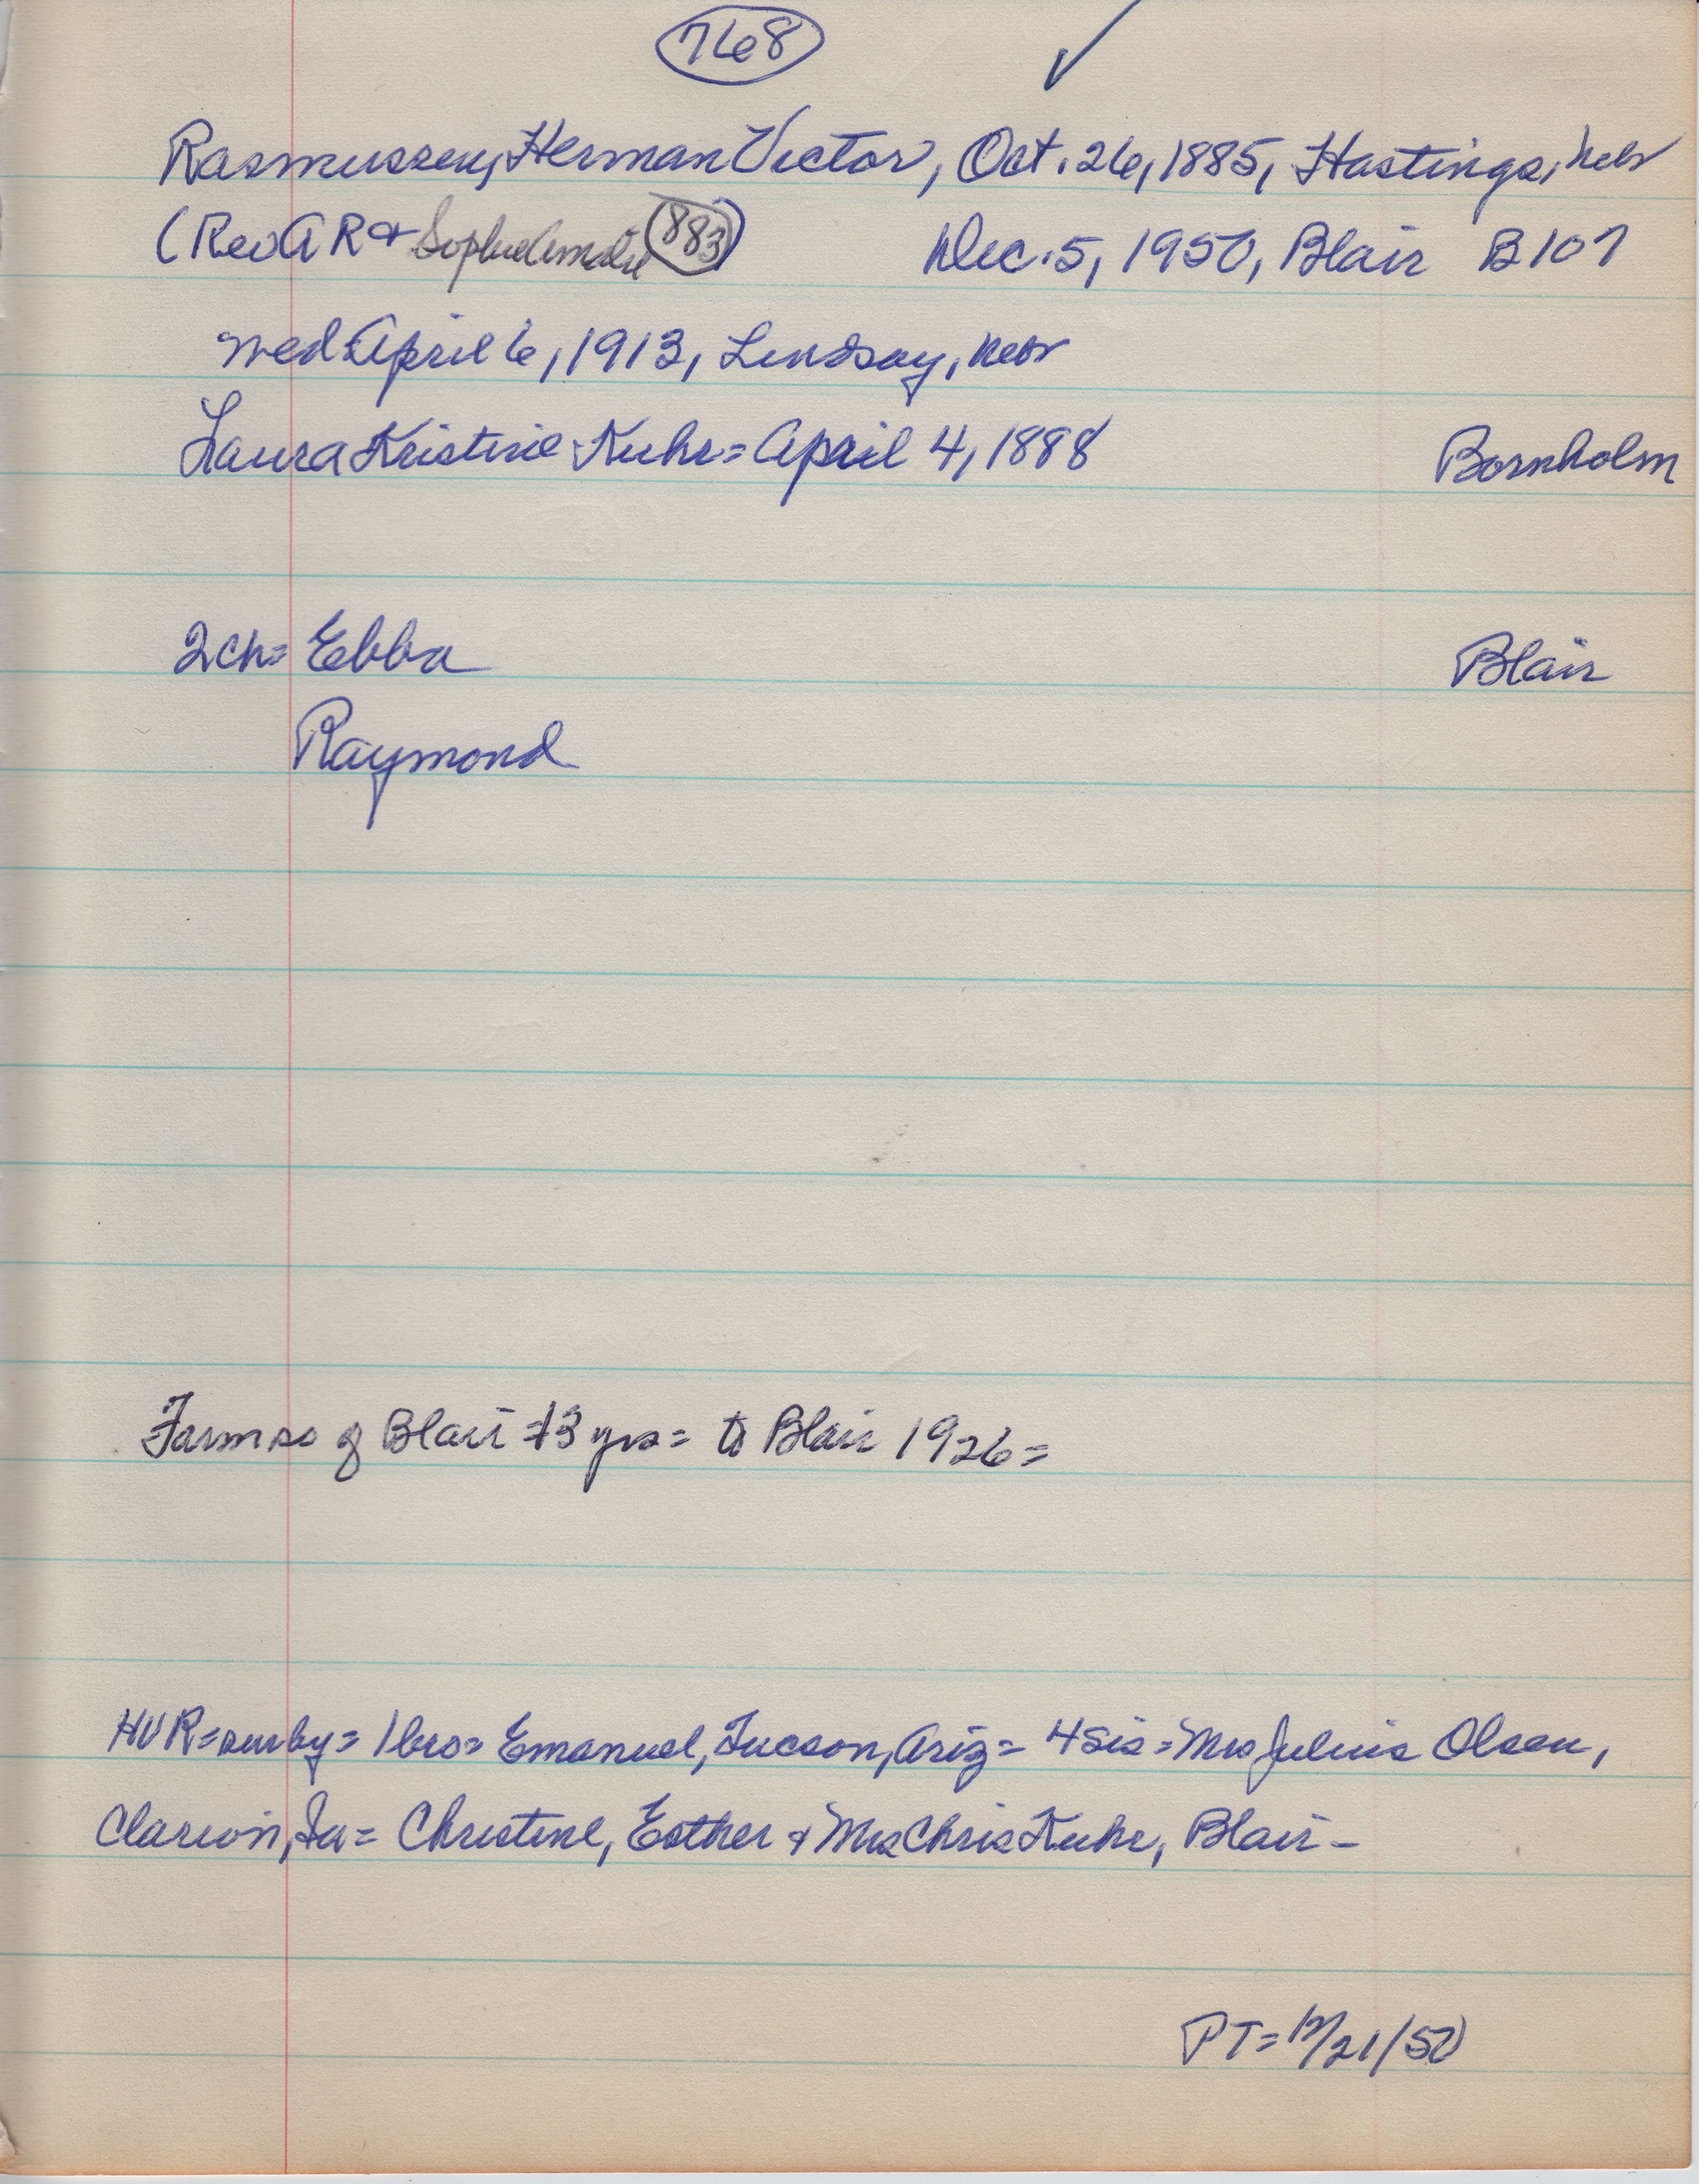 768 ✓
Rasmussen, Herman Victor, Oct. 26, 1885, Hastings, Nebr
(Rev A R & Sophie Amalie 883) Dec. 5, 1950, Blair B107
wed April 6, 1913, Lindsay, Nebr
Laura Kristine Kuhr = April 4, 1888 Bornholm
2 ch = Ebba Blair
Raymond
Farm so of Blair 13 yrs = to Blair 1926 =
HVR = sur by = 1 bro = Emanuel, Tucson, Ariz = 4 sis = Mrs Julius Olsen,
Clarion, Ia = Christine, Esther & Mrs Chris Kuhr, Blair -
PT = 12/21/50